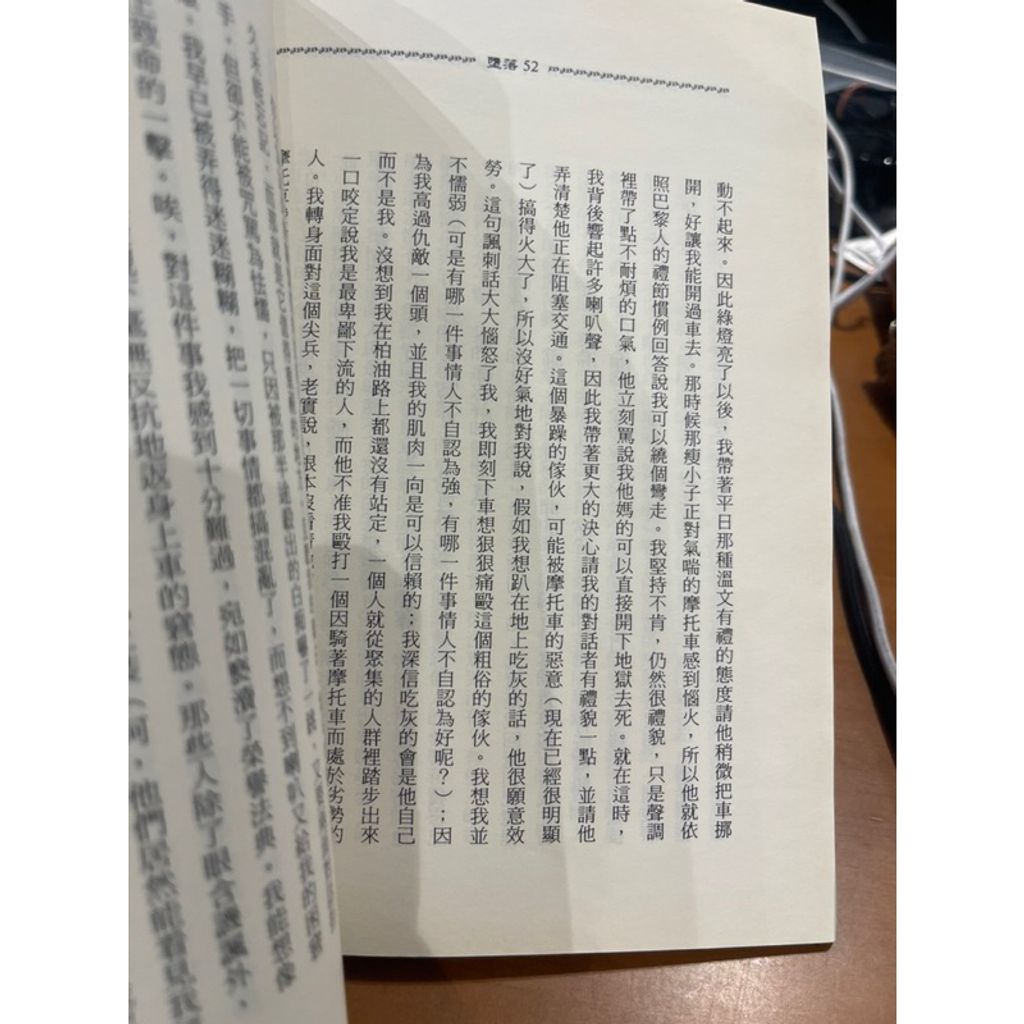 墮落 52
動不起來。因此綠燈亮了以後，我帶著平日那種溫文有禮的態度請他稍微把車挪
開，好讓我能開過車去。那時候那瘦小子正對氣喘的摩托車感到惱火，所以他就依
照巴黎人的禮節慣例回答說我可以繞個彎走。我堅持不肯，仍然很禮貌，只是聲調
裡帶了點不耐煩的口氣，他立刻罵說我他媽的可以直接開下地獄去死。就在這時，
我背後響起許多喇叭聲，因此我帶著更大的決心請我的對話者有禮貌一點，並請他
弄清楚他正在阻塞交通。這個暴躁的傢伙，可能被摩托車的惡意（現在已經很明顯
了）搞得火大了，所以沒好氣地對我說，假如我想趴在地上吃灰的話，他很願意效
勞。這句諷刺話大大惱怒了我，我即刻下車想狠狠痛毆這個粗俗的傢伙。我想我並
不懦弱（可是有哪一件事情人不自認為強，有哪一件事情人不自認為好呢？）；因
為我高過仇敵一個頭，並且我的肌肉一向是可以信賴的；我深信吃灰的會是他自己
而不是我。沒想到我在柏油路上都還沒有站定，一個人就從聚集的人群裡踏步出來
一口咬定說我是最卑鄙下流的人，而他不准我毆打一個因騎著摩托車而處於劣勢的
人。我轉身面對這個尖兵，老實說，根本沒看
手，但卻不能被咒罵為怯懦，只因被那
我早已被弄得迷迷糊糊，把一切事情都搞混亂了，而想不到喇叭又給我的
擊。唉，對這件事我感到十分難過，宛如褻瀆了榮譽法典。我能想像
無反抗地返身上車的窘態，那些人除了眼含譏諷外，
他們居然能看見我